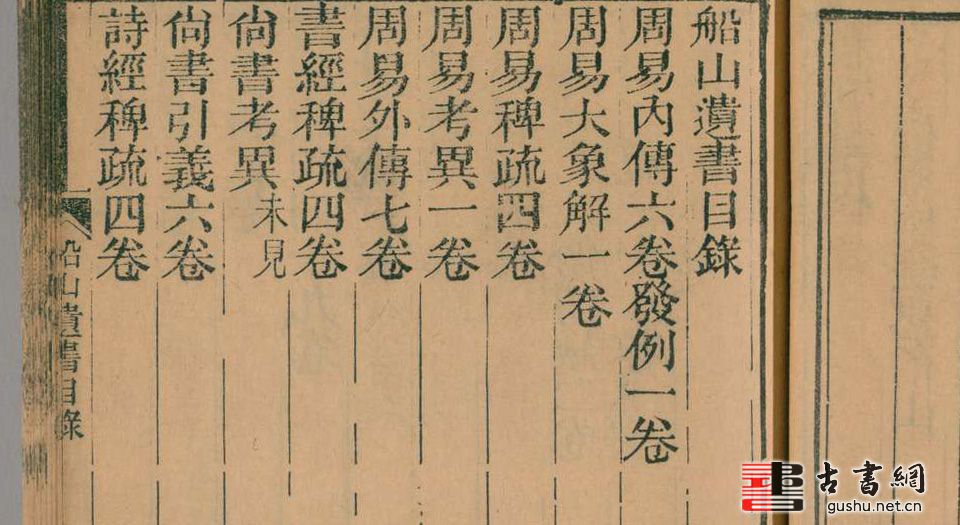 船山遺書目錄
周易內傳六卷發例一卷
周易大象解一卷
周易稗疏四卷
周易考異一卷
周易外傳七卷
書經稗疏四卷
尙書考異未見
尙書引義六卷
詩經稗疏四卷
船山遺書目錄
古書網
gushu.net.cn